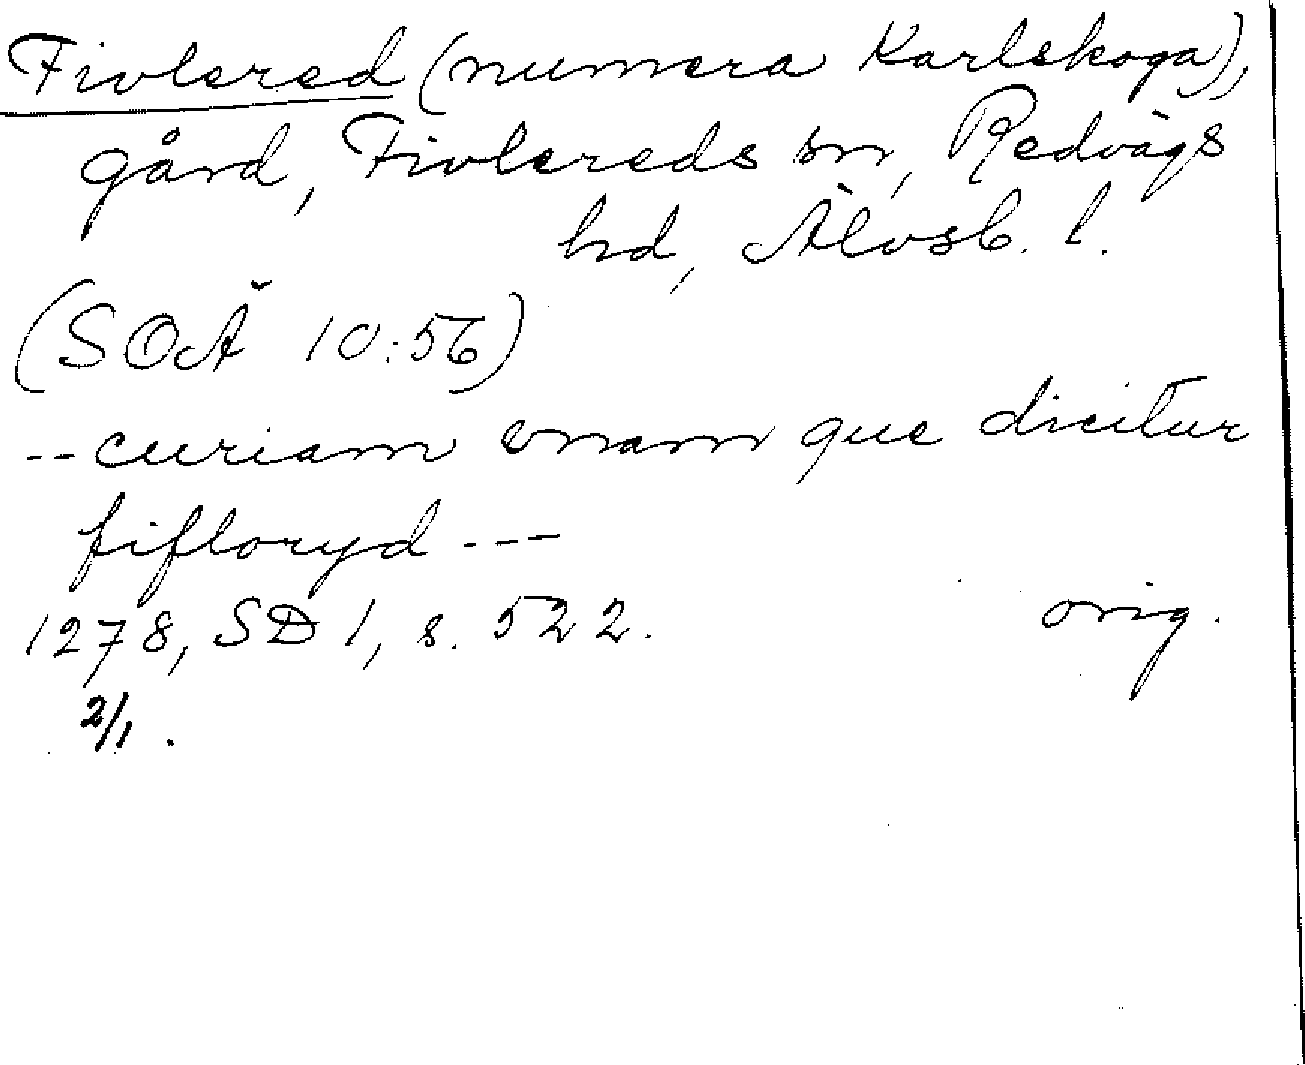 Fivlered (numera Karlskoga),
gård, Fivlereds sn, Redvägs
hd, Älvsb. l.
(SOÄ 10:56)
-- curiam vnam que dicitur
fifloryd ---
1278, SD 1, s. 522. orig.
2/1.